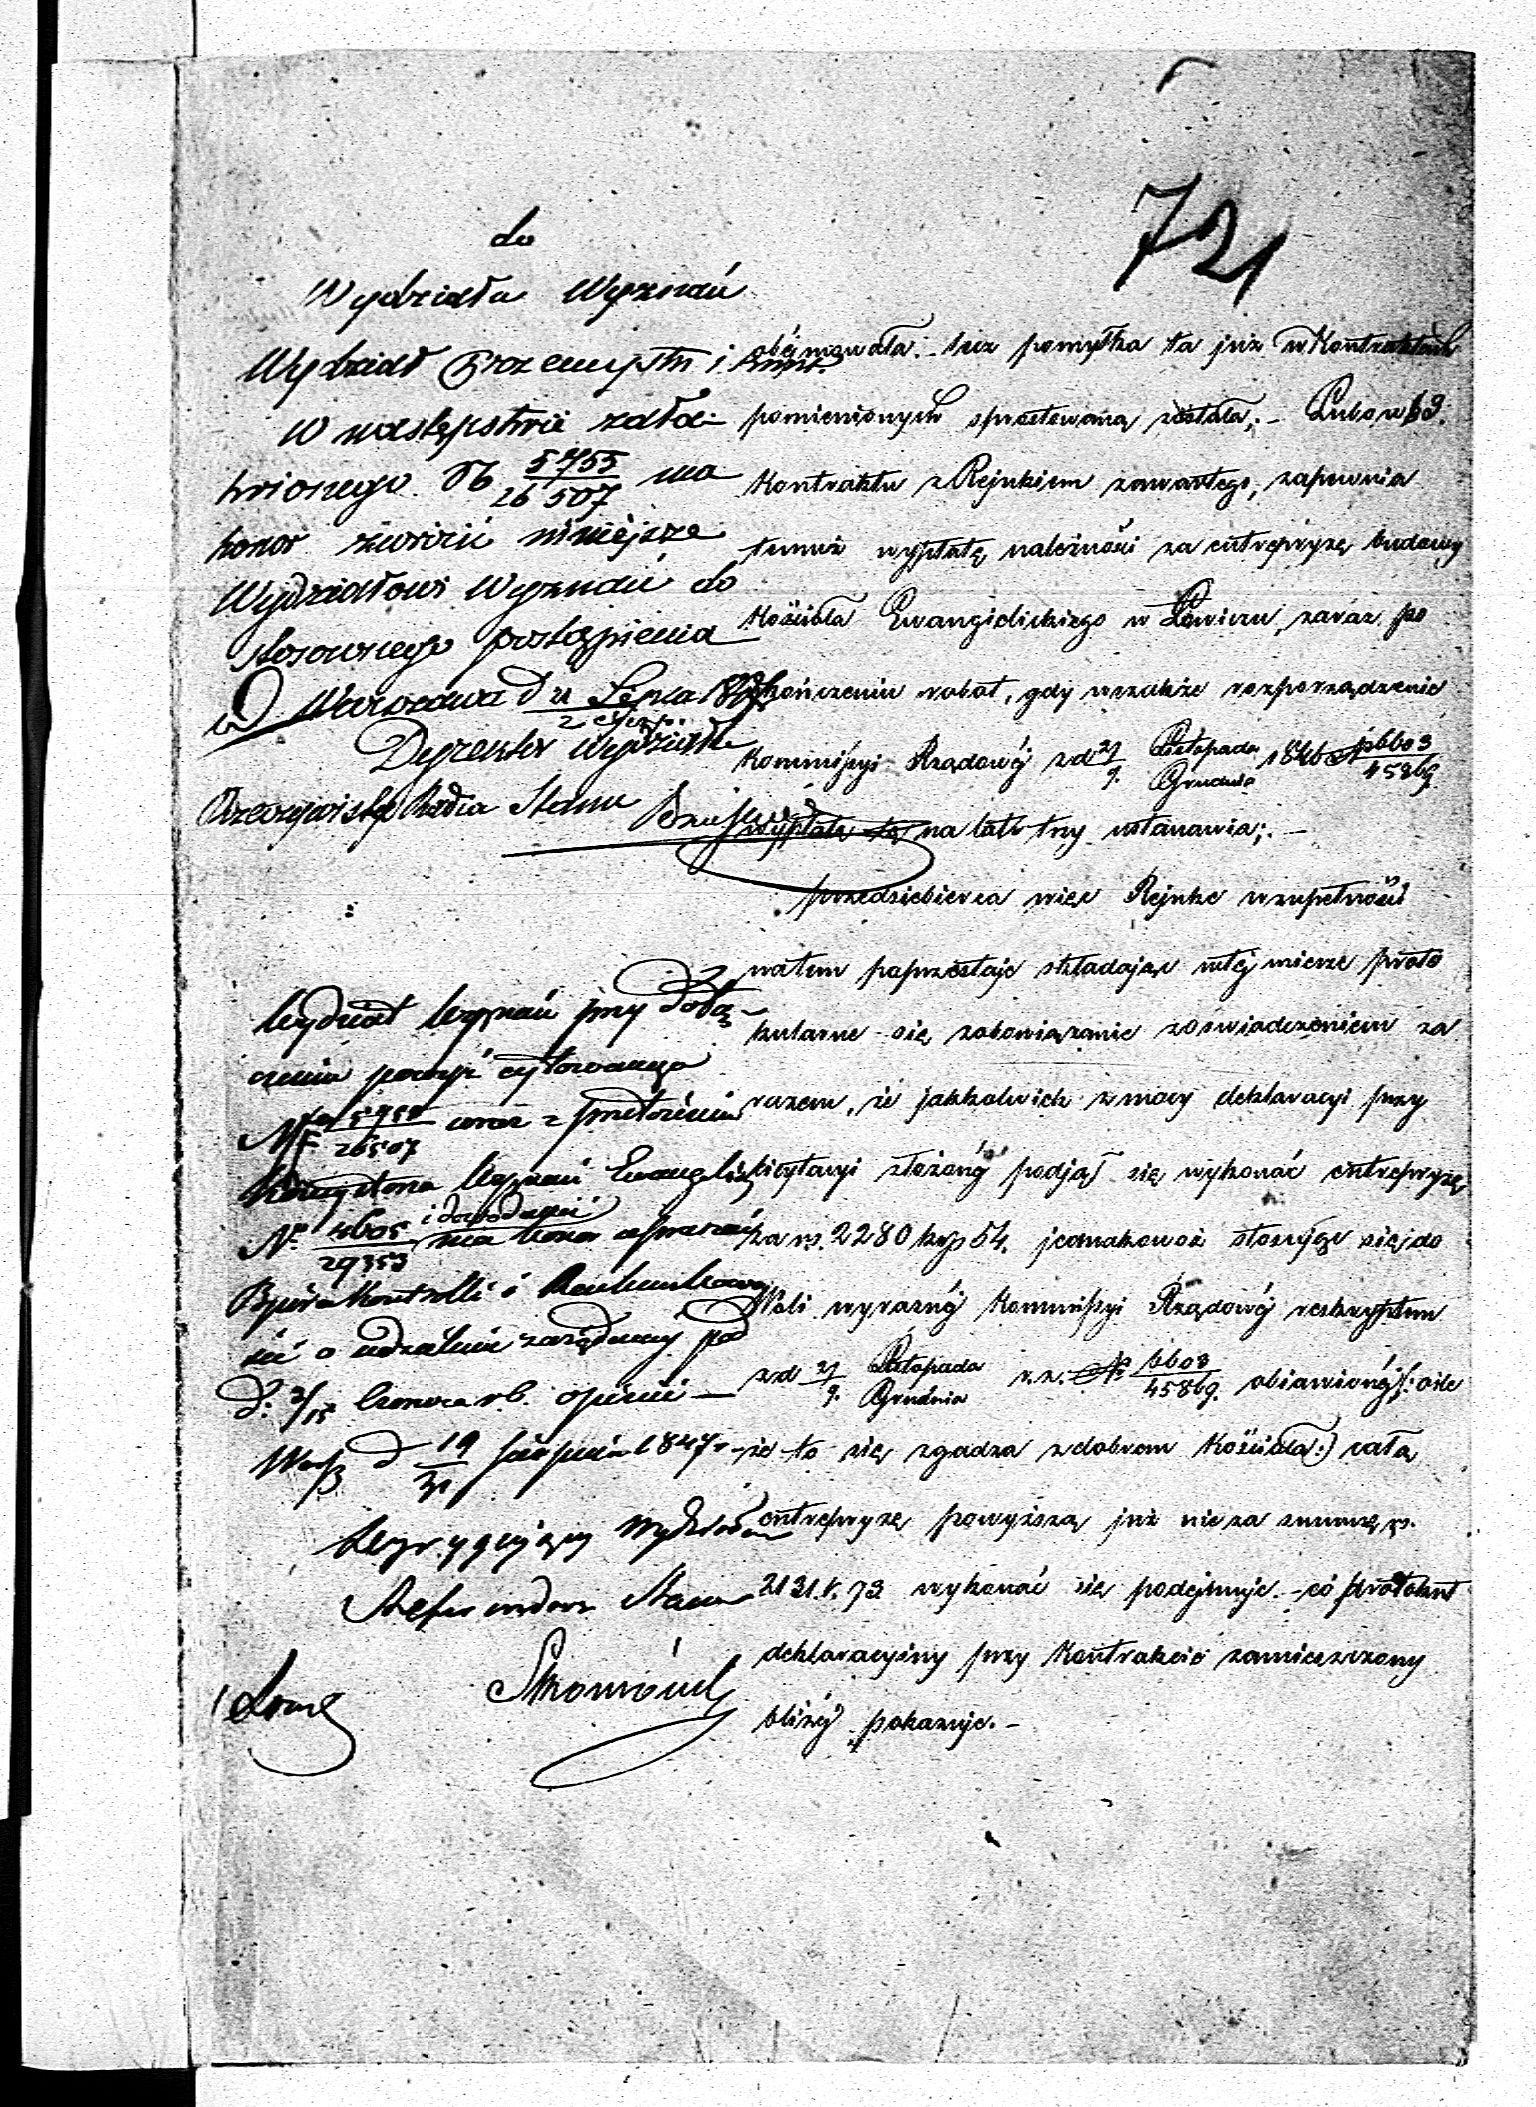 721
do
Wydziału Wyznań
Wydział Przemysłu i Kunst.
W następstwie załat-
wionego N 5755/26507 ma
honor zwrócić niniejsze
Wydziałowi Wyznań do
stosownego postąpienia
Warszawa d Lipca
Dyrektor Wydziału
Rzeczywisty Radca Stanu
Wydział Wyznań przy dołą-
czeniu powyż cytowanego
N 5755/26507 wraz z przełożeniem
Konsystorza Wyznań Ewangelick
N 4605/29353 i dowodami ma honor upraszać
Bjura Kontrolli i Rachunkowo
ści o udzielenie zażądanej pod
d. 3/15 Czerwca r.b. opinii —
Warsz d 19/31 Sierpnia 1847 r
Dyrygujący Wydziałem
Referendarz Stanu
obéjmowała; lecz pomyłka ta już w Kontraktach
pomienionych sprostowaną została; - Lubo w § 9.
Kontraktu z Rejnkiem zawartego, zapewnia
temuż wypłatę należności za entrepryzę budowy
Kościoła Ewangielickiego w Łowiczu, zaraz po
ukończeniu robot, gdy wszakże rozporządzenie
Kommissyi Rządowéj z d 27/9. Listopada/Grudnia 1846 N 6603/45869
wypłatę tę na lat trzy ustanawia; -
przedsiebierca więc Rejnke w zupełności
na tem poprzestaje składając w téj mierze proto
kularne się zobowiązanie z oświadczeniem za
razem, że jakkolwiek z mocy deklaracyi przy
licytacyi złożonéj podjął się wykonać entrepryzę
za rs. 2280 kop 54. jednakowoż stosując się do
Woli wyraźnéj Kommissyi Rządowéj reskryptem
z d 27/9. Listopada/Grudnia r.z. N 6603/45869. obiawionéj (: o ile
że to się zgadza z dobrem Kościoła:) całą
entrepryzę powyższą już nie za summę rs.
2131. k. 73 wykonać się podejmuje. - co protokuł
deklaracyjny przy Kontrakcie zamieszczony
bliżéj pokazuje. -